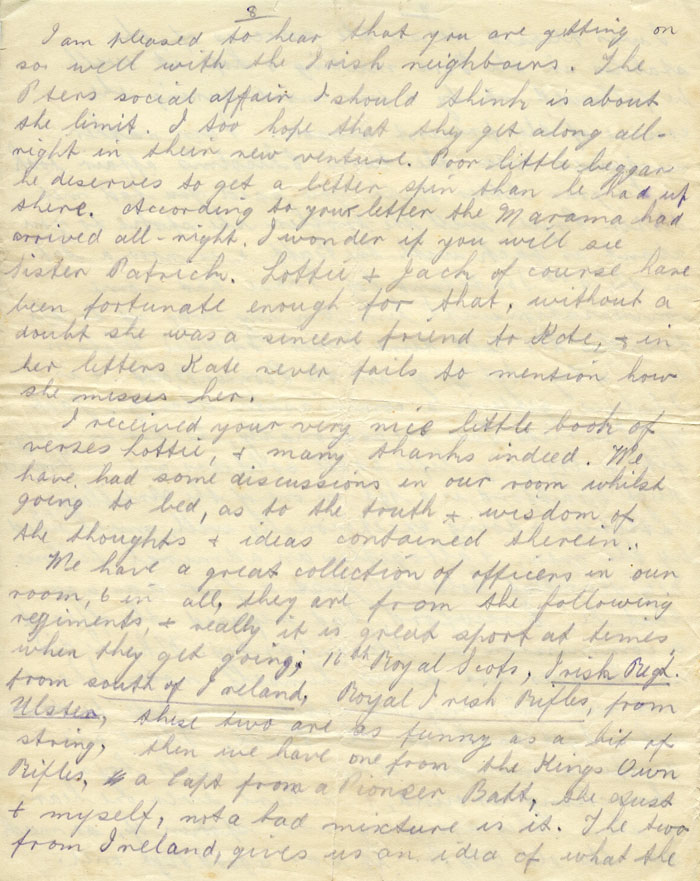 8
I am pleased to hear that you are getting on
so well with the Irish neighbours. The
Pters social affair I should think is about
the limit. I too hope that they get along all-
right in their new venture. Poor little beggar
he deserves to get a better spin than he had up
there. According to your letter the Marama had
arrived all-right. I wonder if you will see
Sister Patrick. Lottie & Jack of course have
been fortunate enough for that, without a
doubt she was a sincere friend to Kate, & in
her letters Kate never fails to mention how
she misses her.
I received your very nice little book of
verses Lottie, & many thanks indeed. We
have had some discussions in our room whilst
going to bed, as to the truth & wisdom of
the thoughts & ideas contained therein.
We have a great collection of officers in our
room, 6 in all, they are from the following
regiments, & really it is great sport at times
when they get going; 16th Royal Scots, Irish Regt.
from south of Ireland, Royal Irish Rifles, from
Ulster, these two are as funny as a bit of
string, then we have one from the Kings Own
Rifles, a Capt from a Pioneer Batt, the
& myself, not a bad mixture is it. The two
from Ireland, gives us an idea of what the